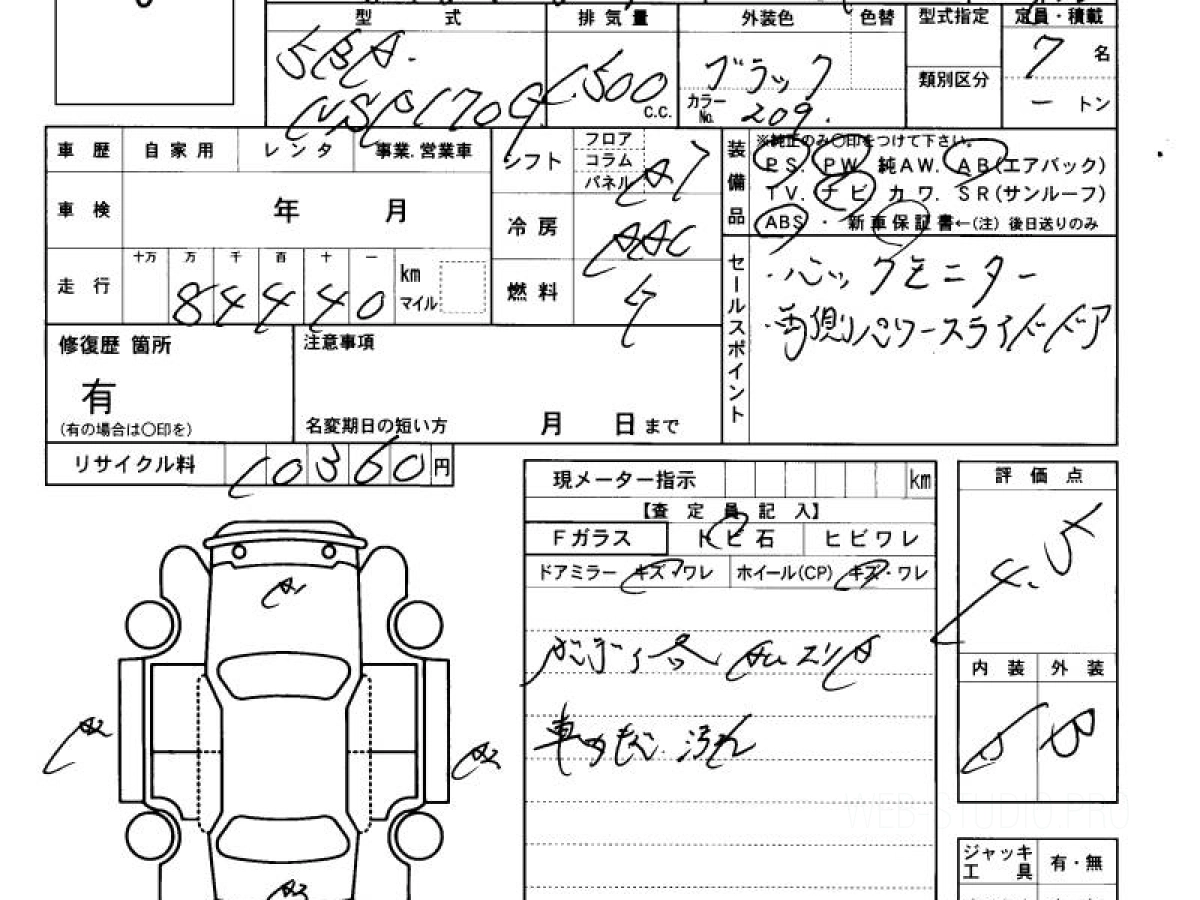 型 式 排 気 量 外装色 色替 型式指定 定員・積載
5BA- 1500 c.c. ブラック 7 名
NSP170G カラーNo. 209. 類別区分 ー トン
車 歴 自 家 用 レ ン タ 事業.営業車
シフト フロア コラム パネル AT
装備品 ※純正のみ〇印をつけて下さい。
PS. PW. 純AW. AB(エアバック)
TV. ナビ カワ. SR(サンルーフ)
ABS ・ 新車保証書←(注) 後日送りのみ
車 検 年 月
冷 房 AAC
走 行 十万 万 千 百 十 一 km マイル
84440
燃 料
セールスポイント
・バックモニター
・両側パワースライドドア
修復歴 箇所
有
(有の場合は〇印を)
注意事項
名変期日の短い方 月 日 まで
リサイクル料 10360 円
現メーター指示 km
【査 定 員 記 入】
Fガラス トビ石 ヒビワレ
ドアミラー キズ・ワレ ホイール(CP) キズ・ワレ
車内 汚れ
評 価 点
4.5
内 装 外 装
B B
A1
A2
A2
ジャッキ
工 具 有・無
WEB-STUDIO.PRO